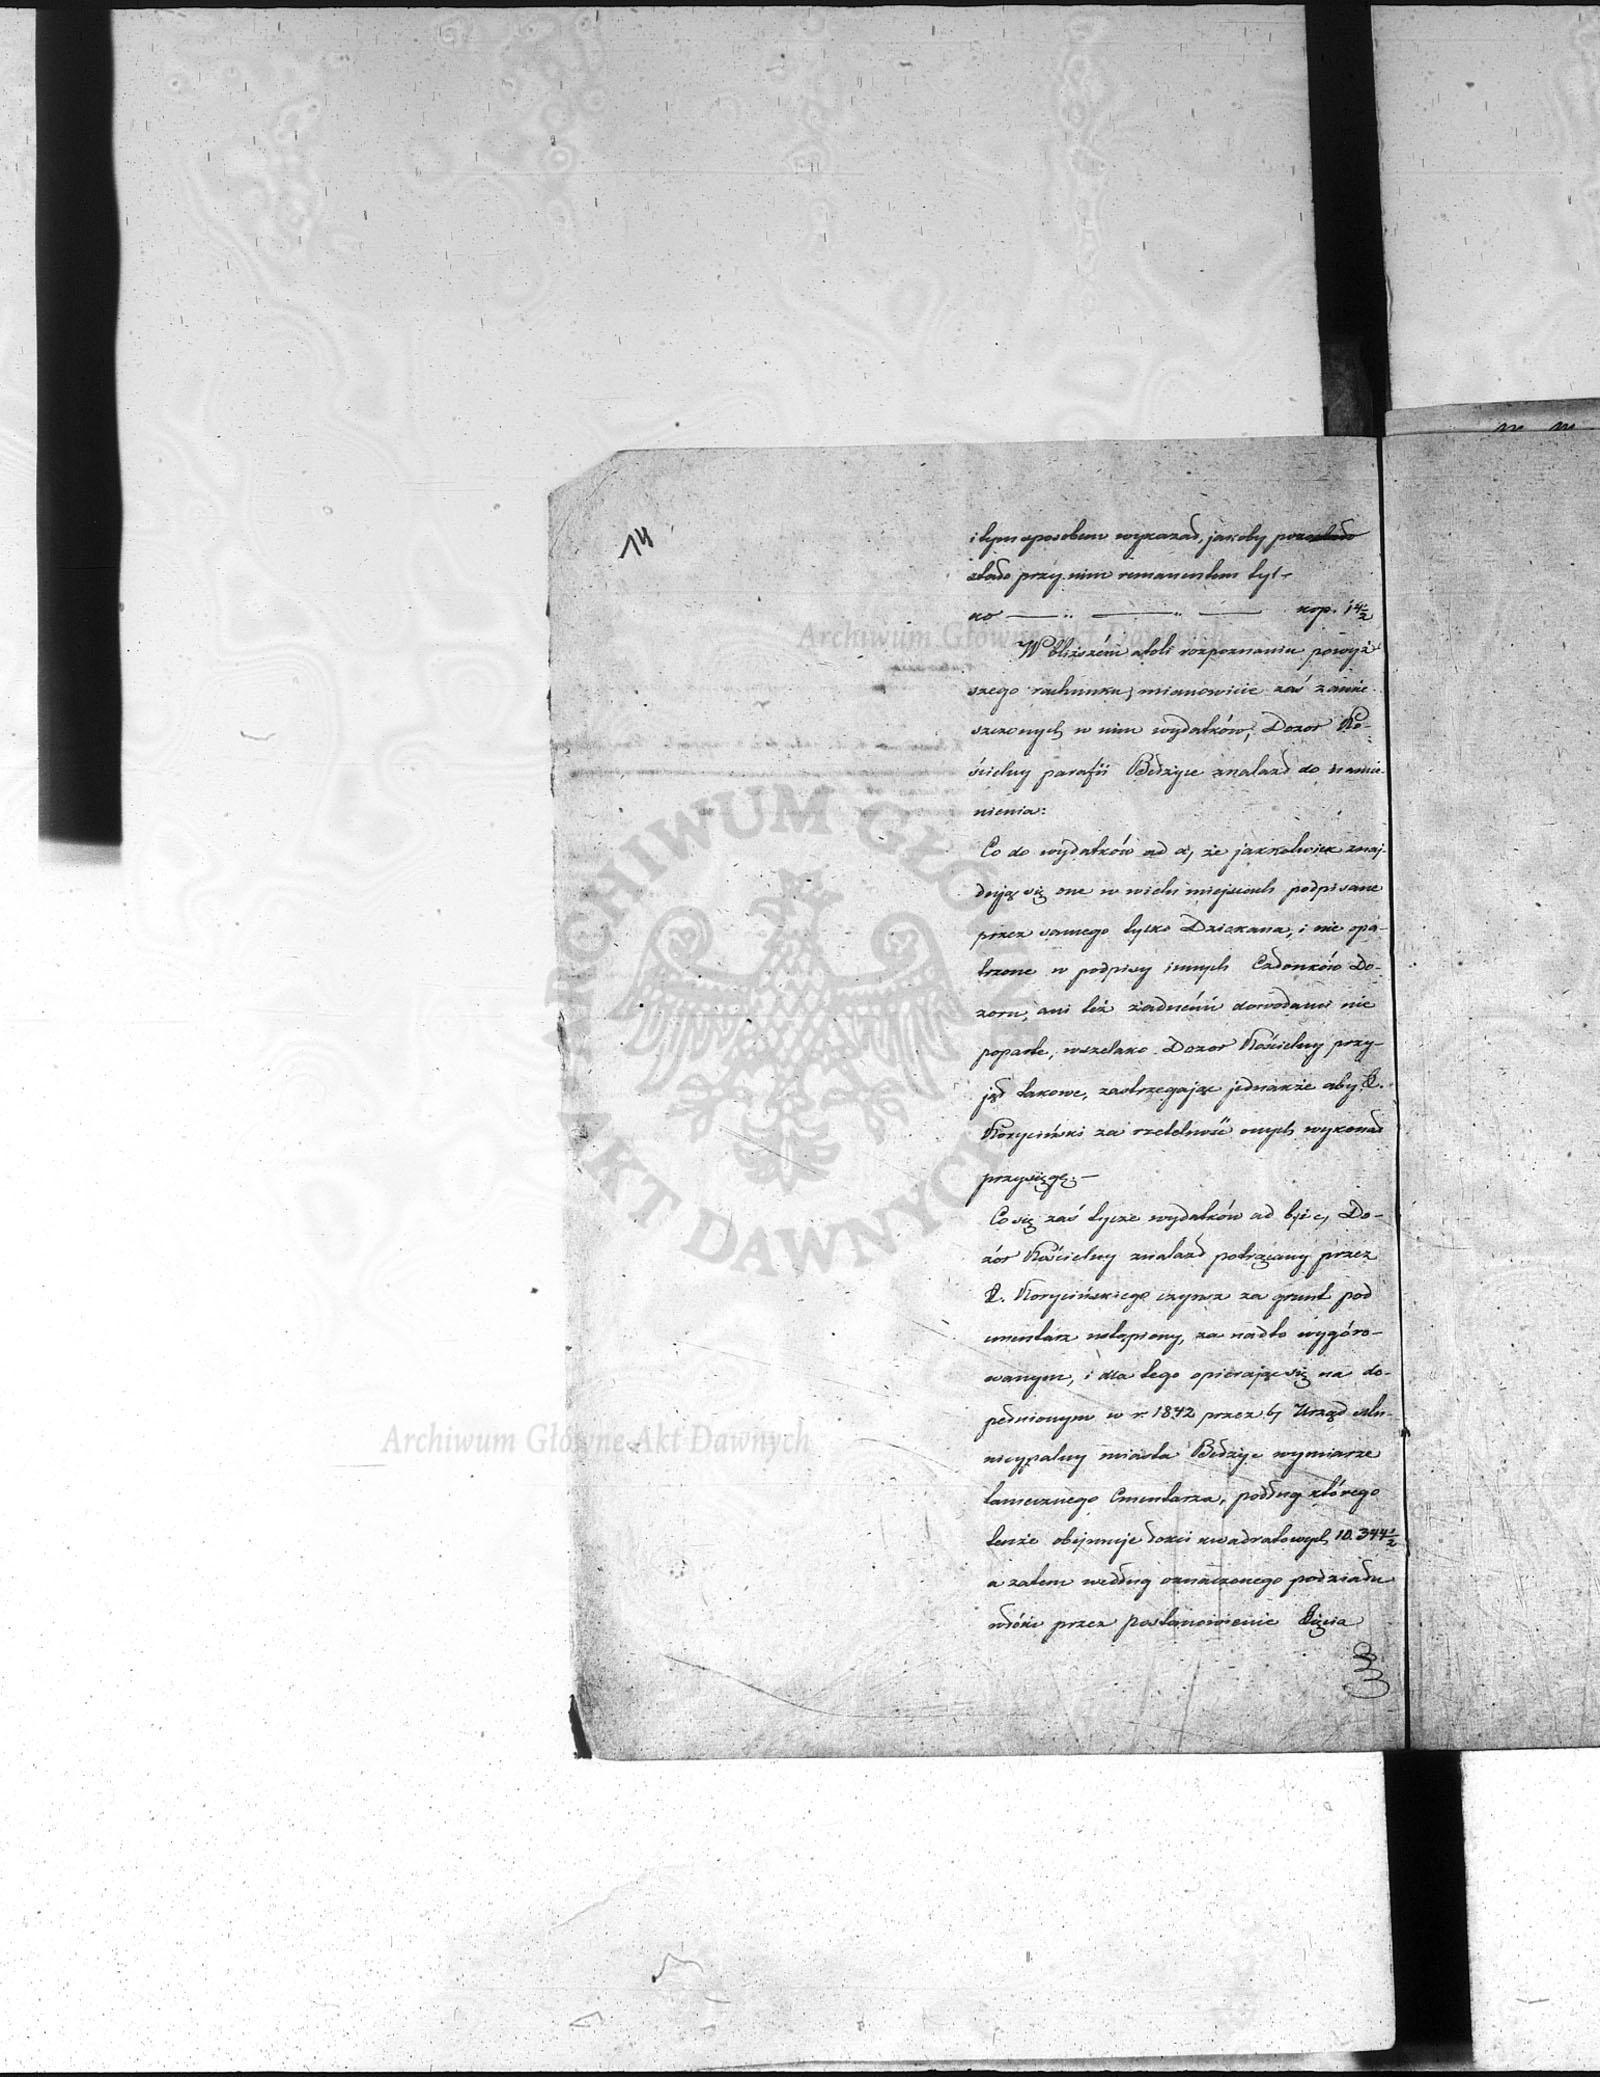 14
i tym sposobem wykazał, jakoby pozostało
stało przy nim remanentem tyl-
ko — „ — „ — kop. 14½
W bliższém atoli rozpoznaniu powyż-
szego rachunku, mianowicie zaś zamie-
szczonych w nim wydatków, Dozor Ko-
ścielny parafii Bełżyce znalazł do nadmie-
nienia:
Co do wydatków ad a, że jakkolwiek znaj-
dują się one w wielu miejscach podpisane
przez samego tylko Dziekana, i nie opa-
trzone w podpisy innych Członków Do-
zoru, ani też żadnémi dowodami nie
poparte, wszelako Dozor Kościelny przy-
jął takowe, zastrzegając jednakże aby X.
Koryciński za rzetelność onych wykonał
przysięgę.—
Co się zaś tycze wydatków ad b, i c, Do-
zór Kościelny znalazł potrącany przez
X. Korycińskiego czynsz za grunt pod
cmentarz ustąpiony, za nadto wygóro-
wanym, i dla tego opierając się na do-
pełnionym w r. 1842 przez b, Urząd Mu-
nicypalny miasta Bełżyc wymiarze
tamecznego Cmentarza, podług którego
tenże obejmuje łokci kwadratowych 10.344½
a zatem według oznaczonego podziału
włóki przez postanowienie Xięcia
Archiwum Główne Akt Dawnych
ARCHIWUM GŁÓWNE AKT DAWNYCH
Archiwum Główne Akt Dawnych